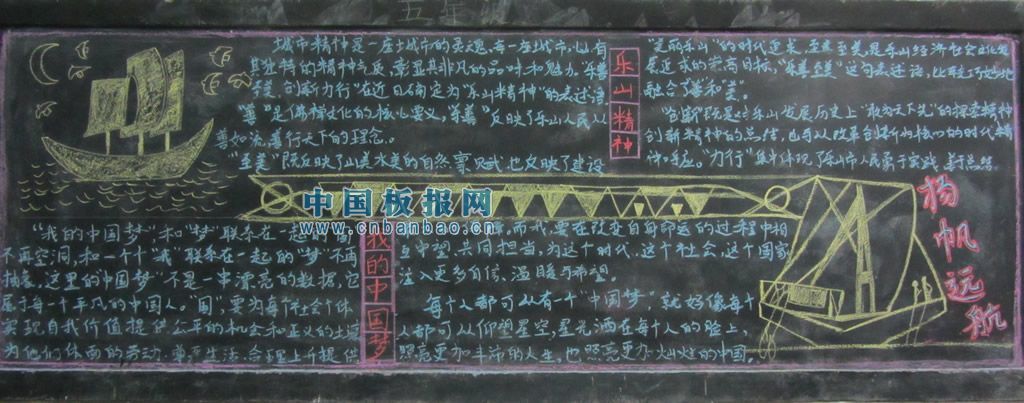 五年
城市精神是一座城市的灵魂,每一座城市,也有
其独特的精神气质,彰显其非凡的品味和魅力."乐善
至美 创新力行"在近日确定为"乐山精神"的表述语.
"善"是佛禅文化的核心要义,"乐善"反映了乐山人民从
善如流,善行天下的理念.
"至美"既反映了山美水美的自然禀赋,也反映了建设
乐山精神
"美丽乐山"的时代追求,至真至美,是乐山经济社会
展追求的崇高目标."乐善至美"这句表述语,比较巧妙地
融合了善和美.
"创新"既是对乐山发展历史上"敢为天下先"的探索精神
创新精神的总结,也可以改革创新为核心的时代精
神呼应."力行"集中体现了乐山市人民勇于实践,善于总结.
中国板报网
www.cnbanbao.cn
"我的中国梦",和"梦"联系在一起的"国"
不再空洞,和一个个"我"联系在一起的"梦"不再
抽象.这里的"中国梦"不是一串漂亮的数据,它
属于每一个平凡的中国人."国",要为每个社会个体
实现自我价值提供公平的机会和正义的土壤
为他们体面的劳动、尊严生活、合理上升提供
我的中国梦
障.而"我",要在改变自身命运的过程中相
互守望、共同担当,为这个时代、这个社会、这个国家
注入更多自信、温暖与希望.
每个人都可以有一个"中国梦",就好像每个
人都可以仰望星空,星光洒在每个人的脸上,
照亮更加丰沛的人生,也照亮更加灿烂的中国.
杨帆远航